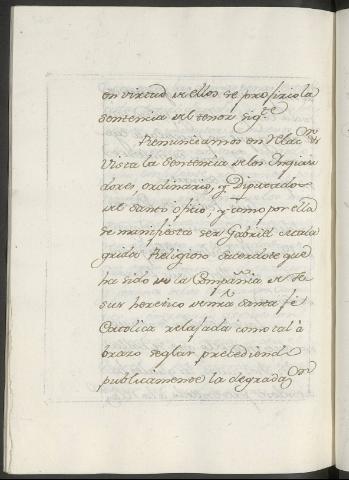 en virtud de ellos se profirio la
Sentencia del tenor sig.te
Renunciamos en Relac.on de
Vista la Sentencia de los Inquisi
dores, ordinario, y Diputados
del Santo oficio, y como por ella
se manifiesta ser Gabriel Mala
grida Religioso Sacerdote que
ha sido de la Compañia de Je
sus heretico de nrã Santa fé
Catolica relajada como tal à
brazo seglar precediend
publicamente la degradaon